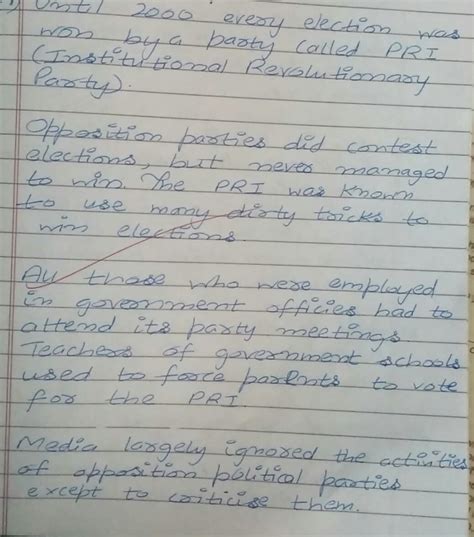 Until 2000 every election was
won by a party called PRI
(Institutional Revolutionary
Party).
Opposition parties did contest
elections, but never managed
to win. The PRI was known
to use many dirty tricks to
win elections.
All those who were employed
in government officies had to
attend its party meetings.
Teachers of government schools
used to force parents to vote
for the PRI.
Media largely ignored the activities
of opposition political parties
except to criticise them.